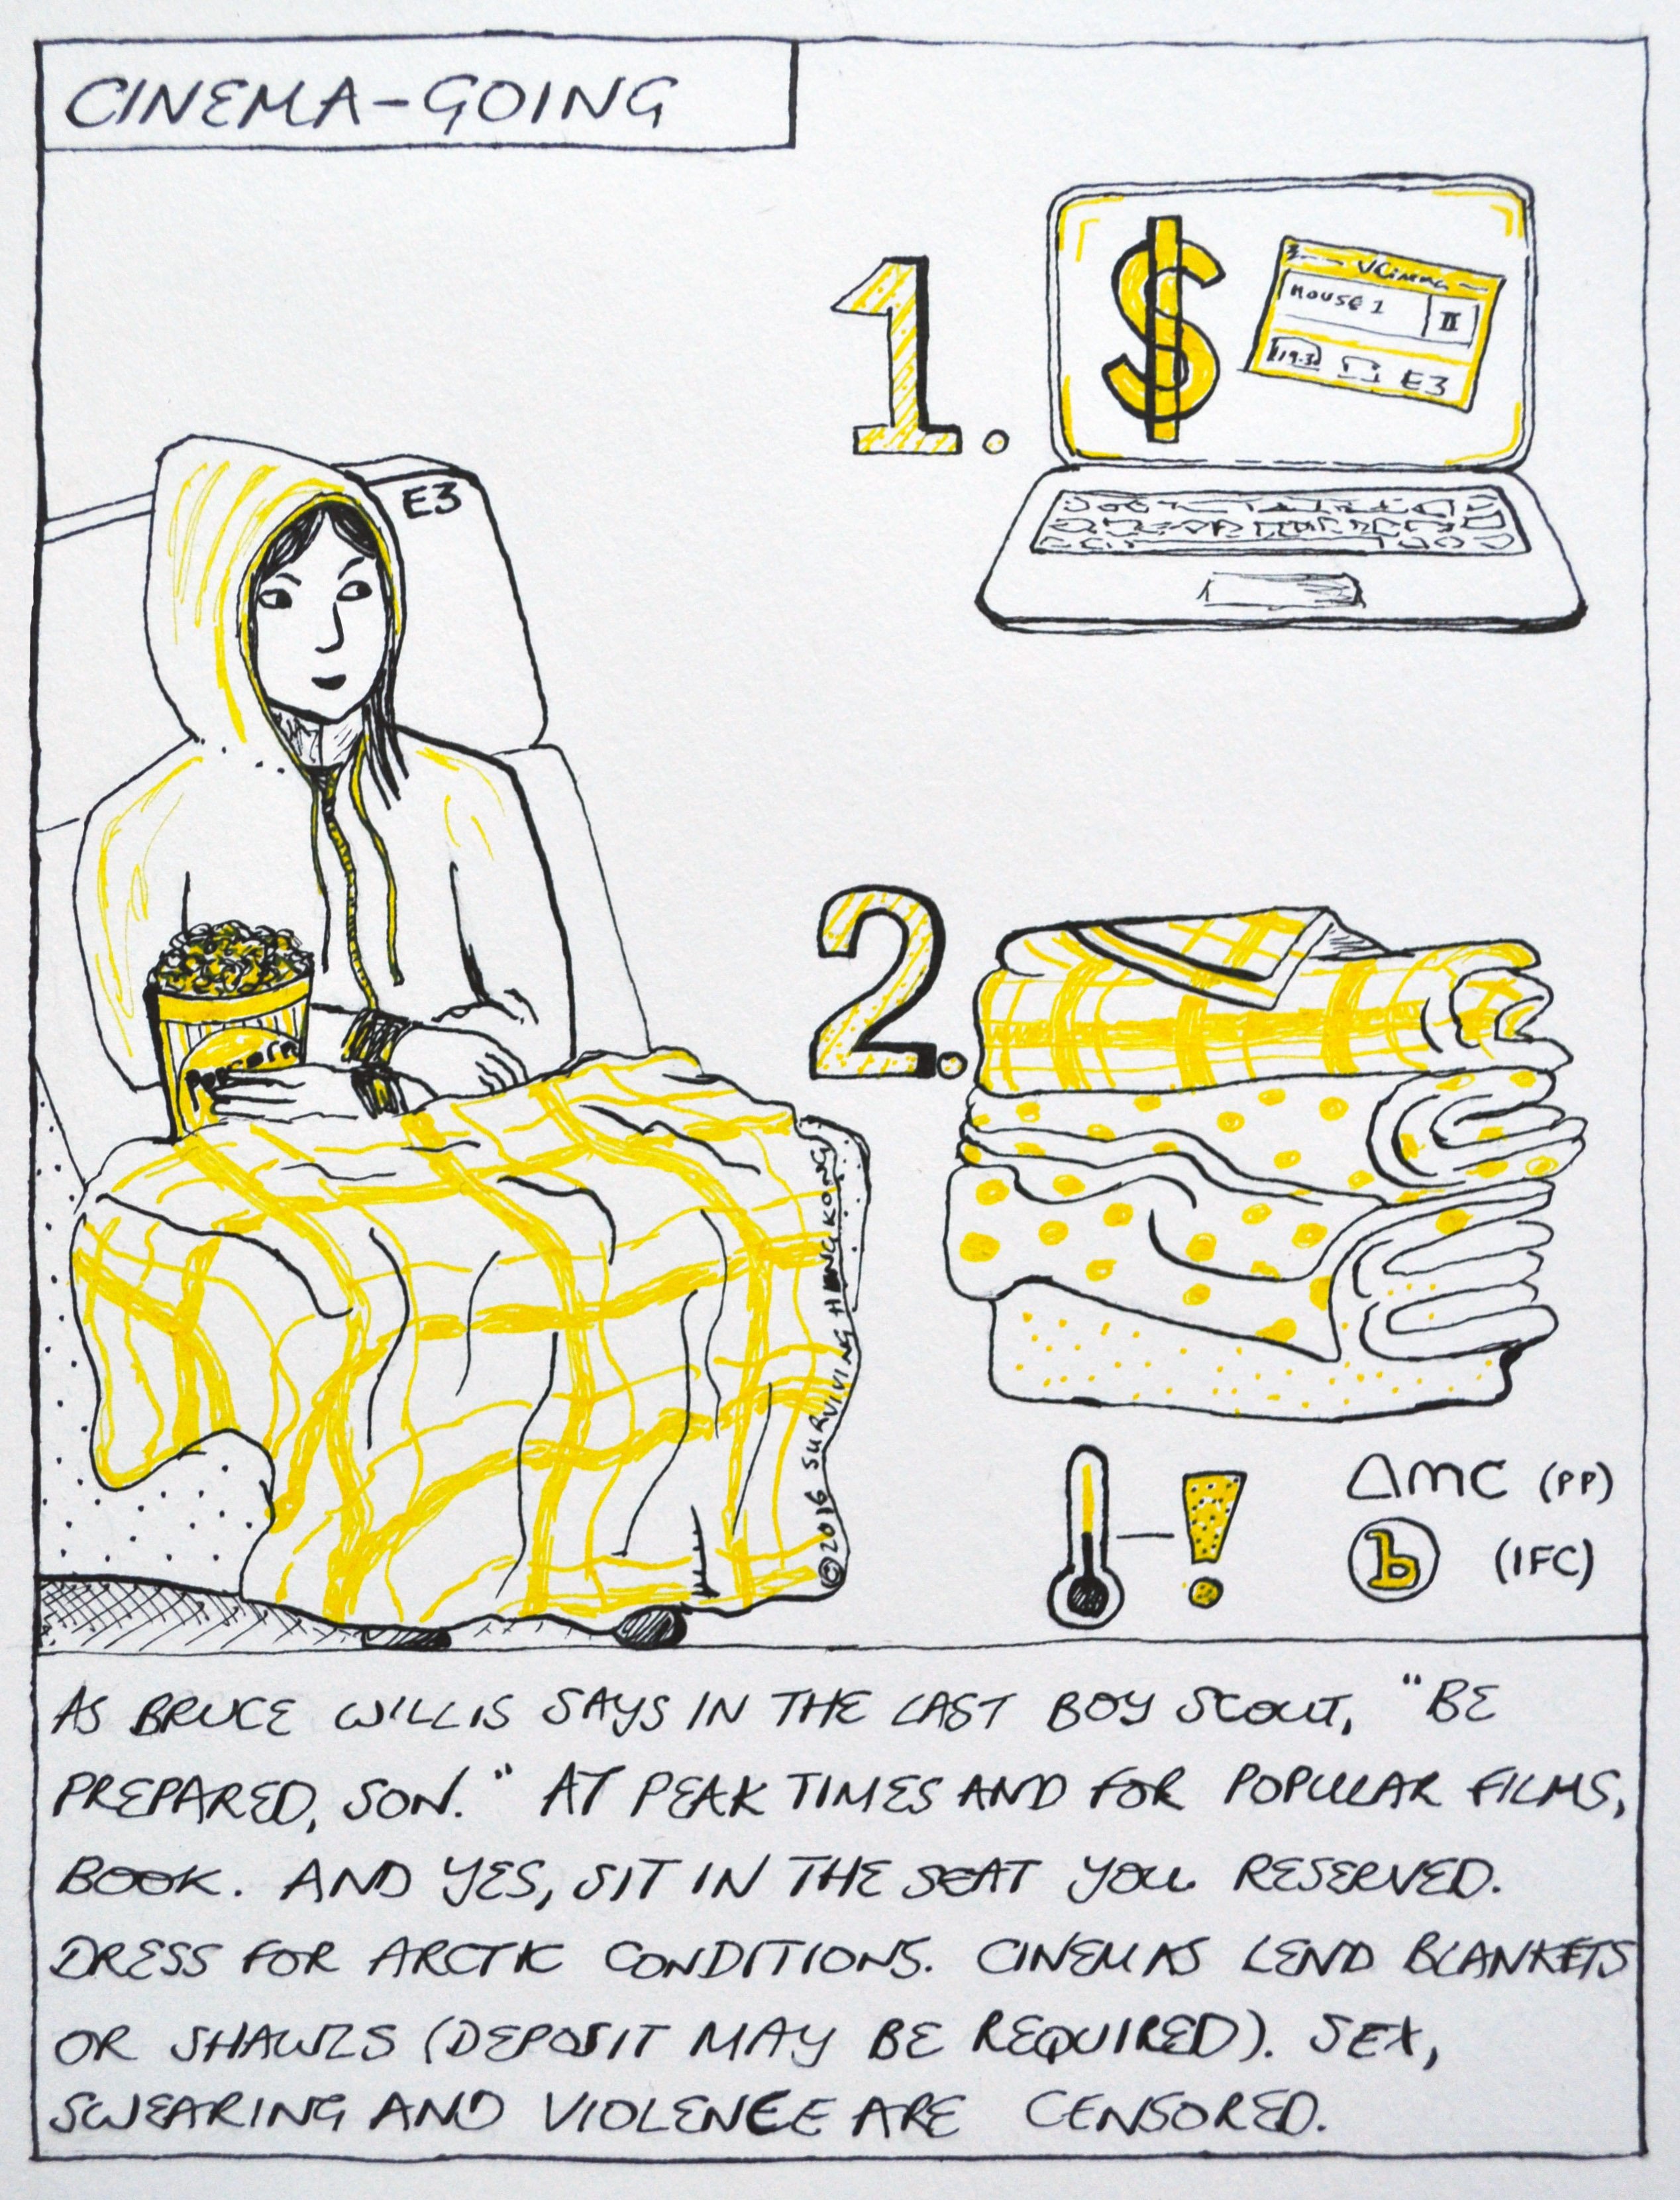 CINEMA-GOING
1.
$
VCinema
HOUSE 1
II
19.30
E3
E3
POPCORN
2.
© 2016 SURVIVING HONG KONG
AMC (PP)
b (IFC)
AS BRUCE WILLIS SAYS IN THE LAST BOY SCOUT, "BE
PREPARED, SON." AT PEAK TIMES AND FOR POPULAR FILMS,
BOOK. AND YES, SIT IN THE SEAT YOU RESERVED.
DRESS FOR ARCTIC CONDITIONS. CINEMAS LEND BLANKETS
OR SHAWLS (DEPOSIT MAY BE REQUIRED). SEX,
SWEARING AND VIOLENCE ARE CENSORED.